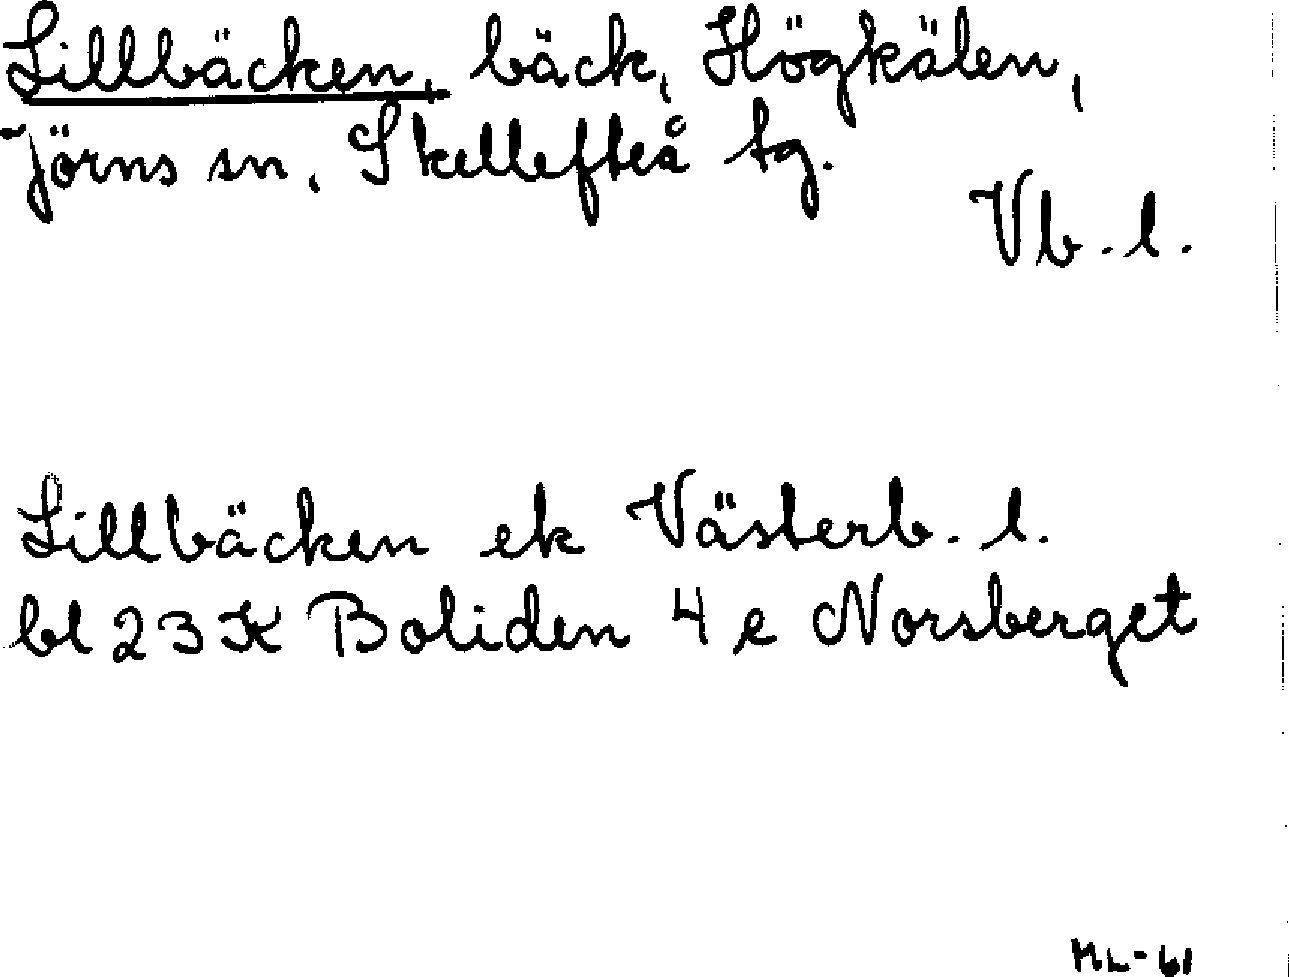 Lillbäcken, bäck, Högkälen,
Jörns sn, Skellefteå tg.
Vb. l.
Lillbäcken ek Västerb. l.
bl 23 K Boliden 4 e Norsberget
ML-61